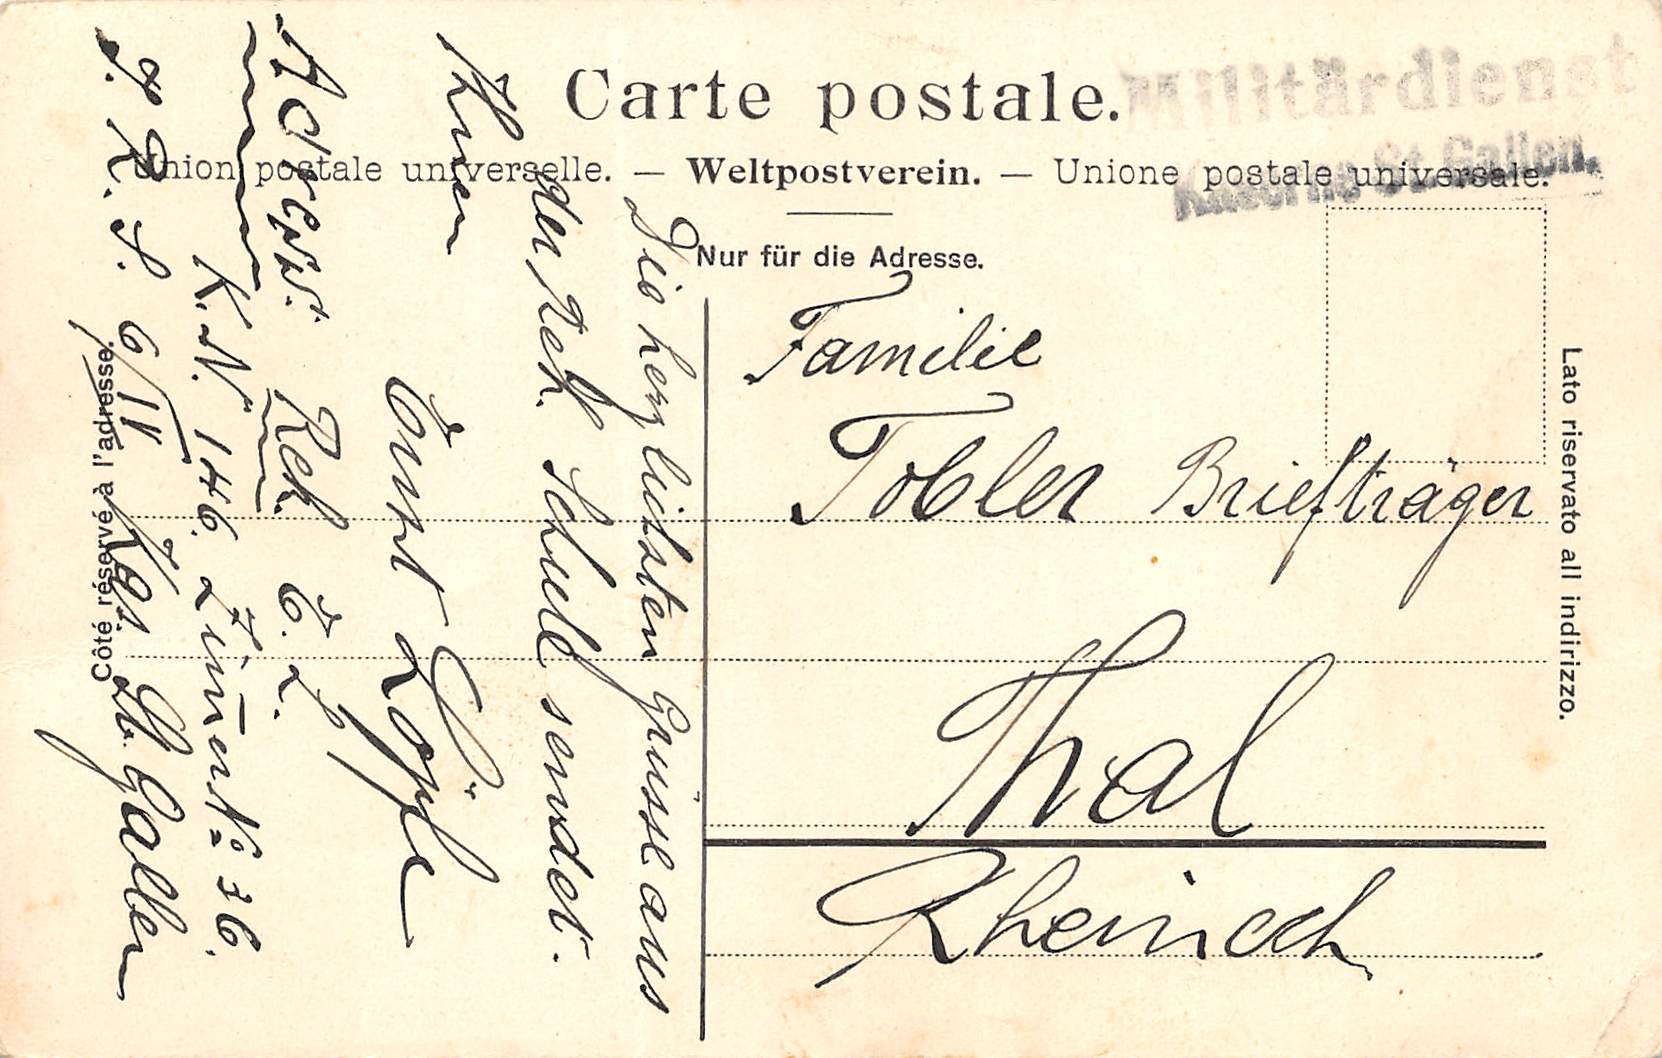 Carte postale.
Militärdienst
Kaserne St. Gallen.
Union postale universelle. — Weltpostverein. — Unione postale universale.
Nur für die Adresse.
Familie
Tobler Briefträger
Thal
Rheineck
Côté réservé à l'adresse.
Lato riservato all indirizzo.
Die herzlichsten Grüsse aus
der Rek. Schule sendet.
Ihnen
Ernst Löpfe
Adress. Rek. E. L.
K. N. 146. Zimer № 36.
I. R. S. 6/IV Kas. St Gallen